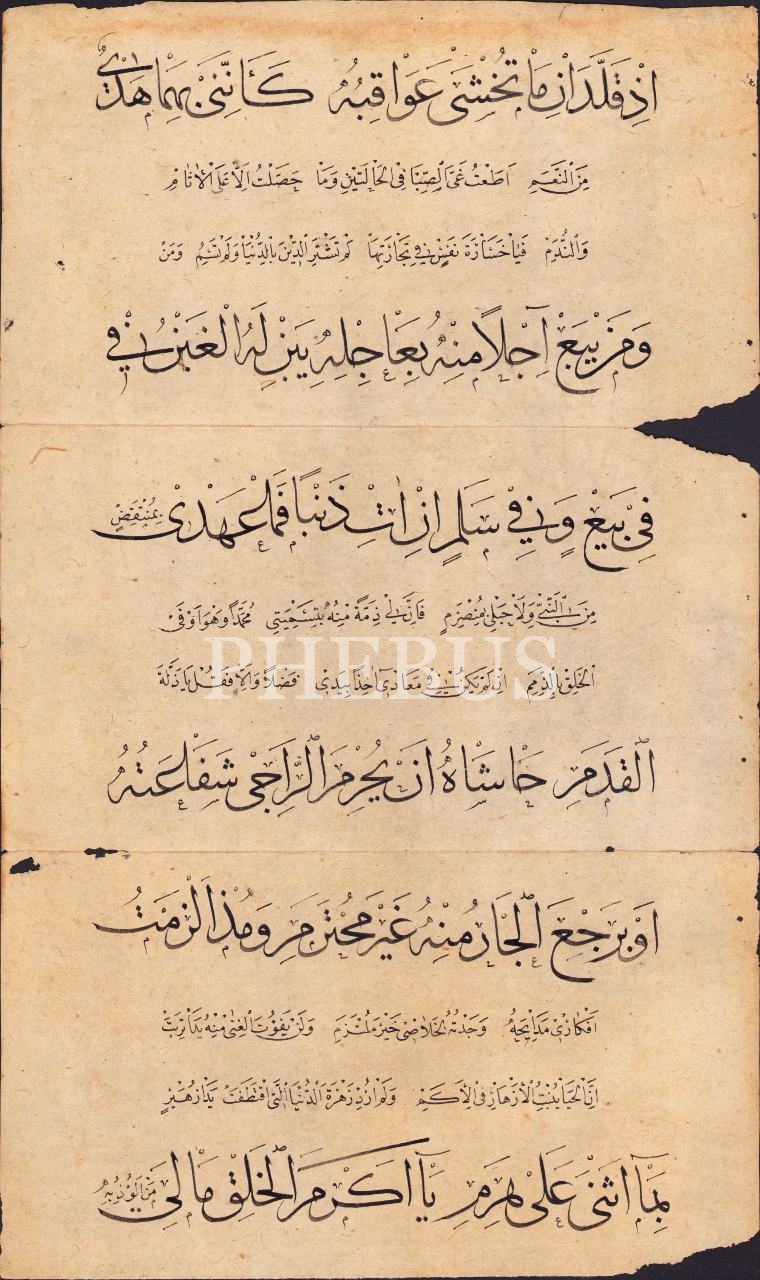 اِذْ قَلَّدَانِىَ مَا تُخْشٰى عَوَاقِبُهُ كَاَنَّنِى بِهِمَا هَدْىٌ
مِنَ النَّعَمِ اَطَعْتُ غَىَّ الصِّبَا فِى الْحَالَتَيْنِ وَمَا حَصَلْتُ اِلَّا عَلَى الْاٰثَامِ
وَالنَّدَمِ فَيَا خَسَارَةَ نَفْسٍ فِى تِجَارَتِهَا لَمْ تَشْتَرِ الدِّينَ بِالدُّنْيَا وَلَمْ تَسُمِ وَمَنْ
وَمَنْ يَبِعْ آجِلًا مِنْهُ بِعَاجِلِهِ يَبِنْ لَهُ الْغَبْنُ فِى
فِى بَيْعٍ وَفِى سَلَمٍ اِنْ اٰتِ ذَنْبًا فَمَا عَهْدِى بِمُنْتَقِضٍ
مِنَ النَّبِىِّ وَلَا حَبْلِى بِمُنْصَرِمٍ فَاِنَّ لِى ذِمَّةً مِنْهُ بِتَسْمِيَتِى مُحَمَّدًا وَهُوَ اَوْفَى
PHEBUS
الْخَلْقِ بِالذِّمَمِ اِنْ لَمْ يَكُنْ فِى مَعَادِى آخِذًا بِيَدِى فَضْلًا وَاِلَّا فَقُلْ يَا زَلَّةَ
الْقَدَمِ حَاشَاهُ اَنْ يُحْرِمَ الرَّاجِى شَفَاعَتُهُ
اَوْ يَرْجِعَ الْجَارُ مِنْهُ غَيْرَ مُحْتَرَمِ وَمُذْ اَلْزَمْتُ
اَفْكَارِى مَدَايِحَهُ وَجَدْتُهُ لِخَلَاصِى خَيْرَ مُلْتَزِمِ وَلَنْ يَفُوتَ الْغِنٰى مِنْهُ يَدًا تَرِبَتْ
اِنَّ الْحَيَا يُنْبِتُ الْاَزْهَارَ فِى الْاَكَمِ وَلَمْ اُرِدْ زَهْرَةَ الدُّنْيَا الَّتِى اقْتَطَفَتْ يَدَا زُهَيْرٍ
بِمَا اَثْنٰى عَلٰى هَرِمِ يَا اَكْرَمَ الْخَلْقِ مَالِى مَنْ اَلُوذُ بِهِ